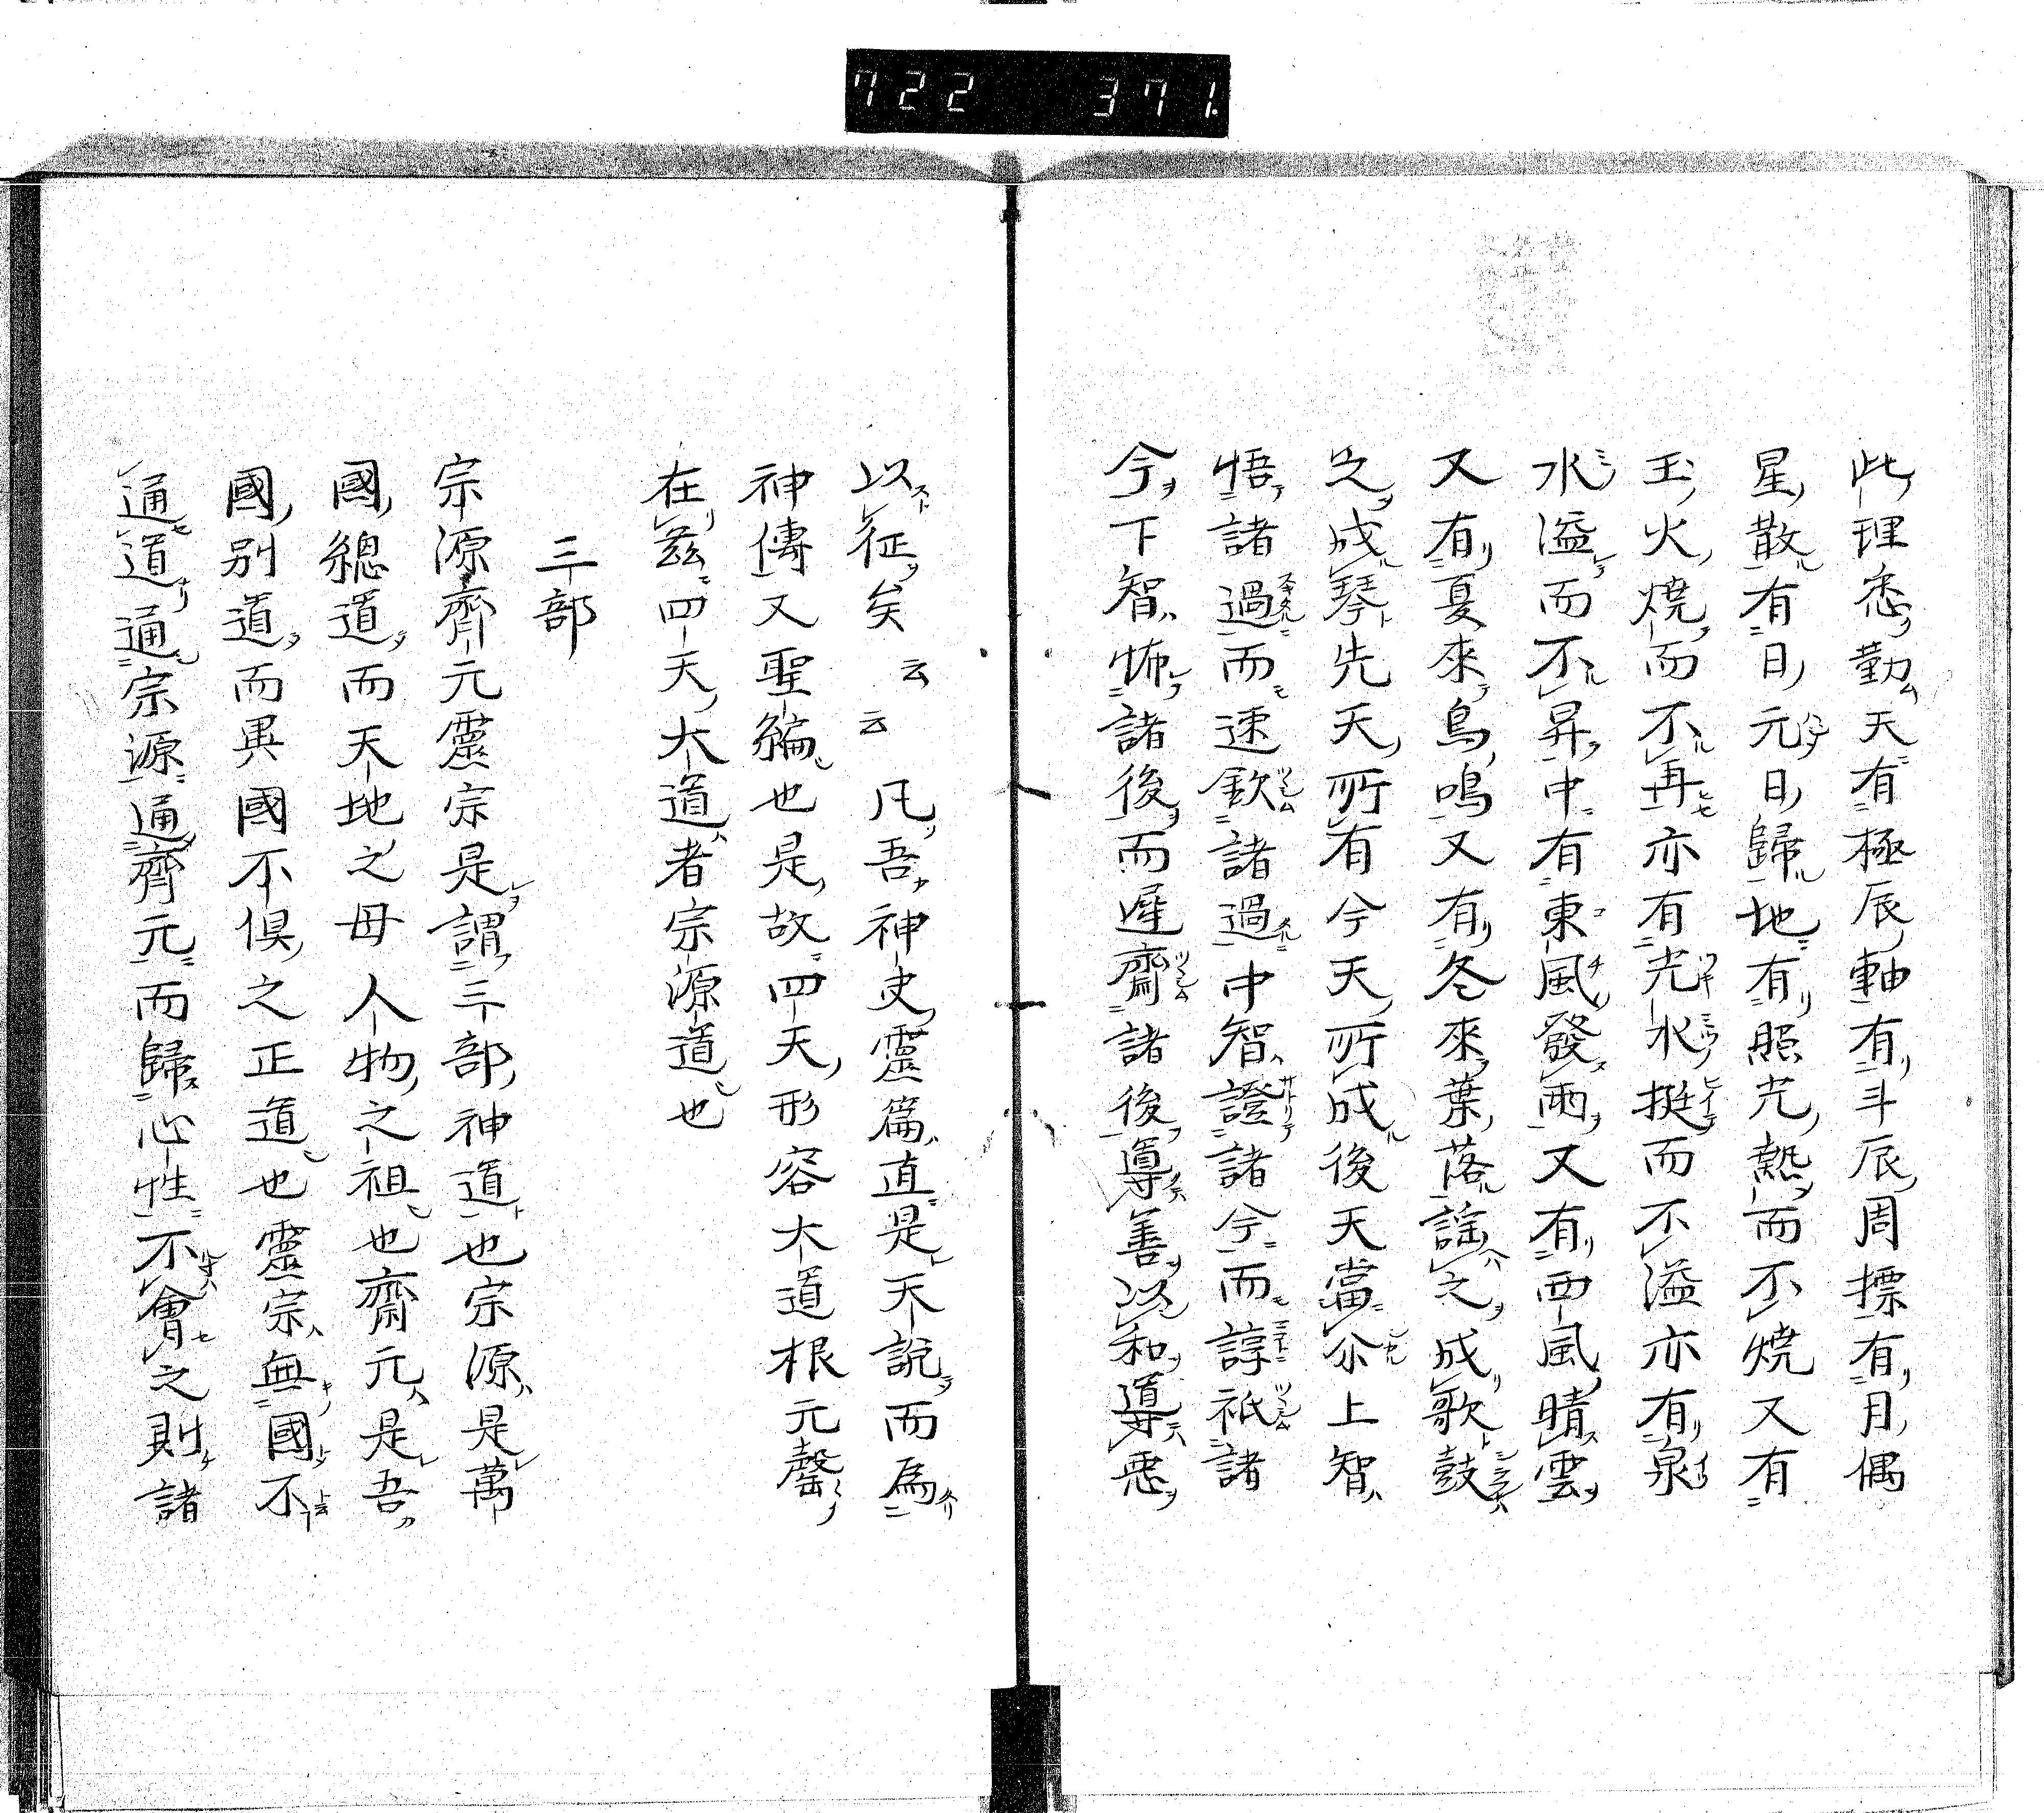 722 371.
此理悉勤天有極辰軸有斗辰周摽有月偶
星散有日元日歸地有照光熱而不燒又有
玉火燒而不再亦有光水挺而不溢亦有泉
水溢而不昇中有東風發雨又有西風晴雲
又有夏來鳥鳴又有冬來葉落謡之成歌鼓
之成琴先天所有今天所成後天當尒上智
悟諸過而速欽諸過中智證諸今而諄祇諸
今下智怖諸後而遲齋諸後導善以和導惡
以征矣云云凡吾神史靈篇直是天說而為
神傳又聖編也是故四天形容大道根元罄
在茲四天大道者宗源道也
三部
宗源齊元靈宗是謂三部神道也宗源是萬
國總道而天地之母人物之祖也齊元是吾
國別道而異國不俱之正道也靈宗無國不
通道通宗源通齊元而歸心性不會之則諸